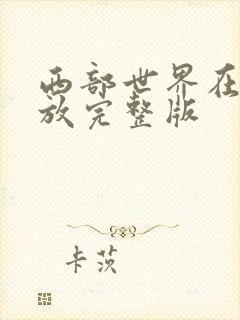 西部世界在
放完整版
卡茨